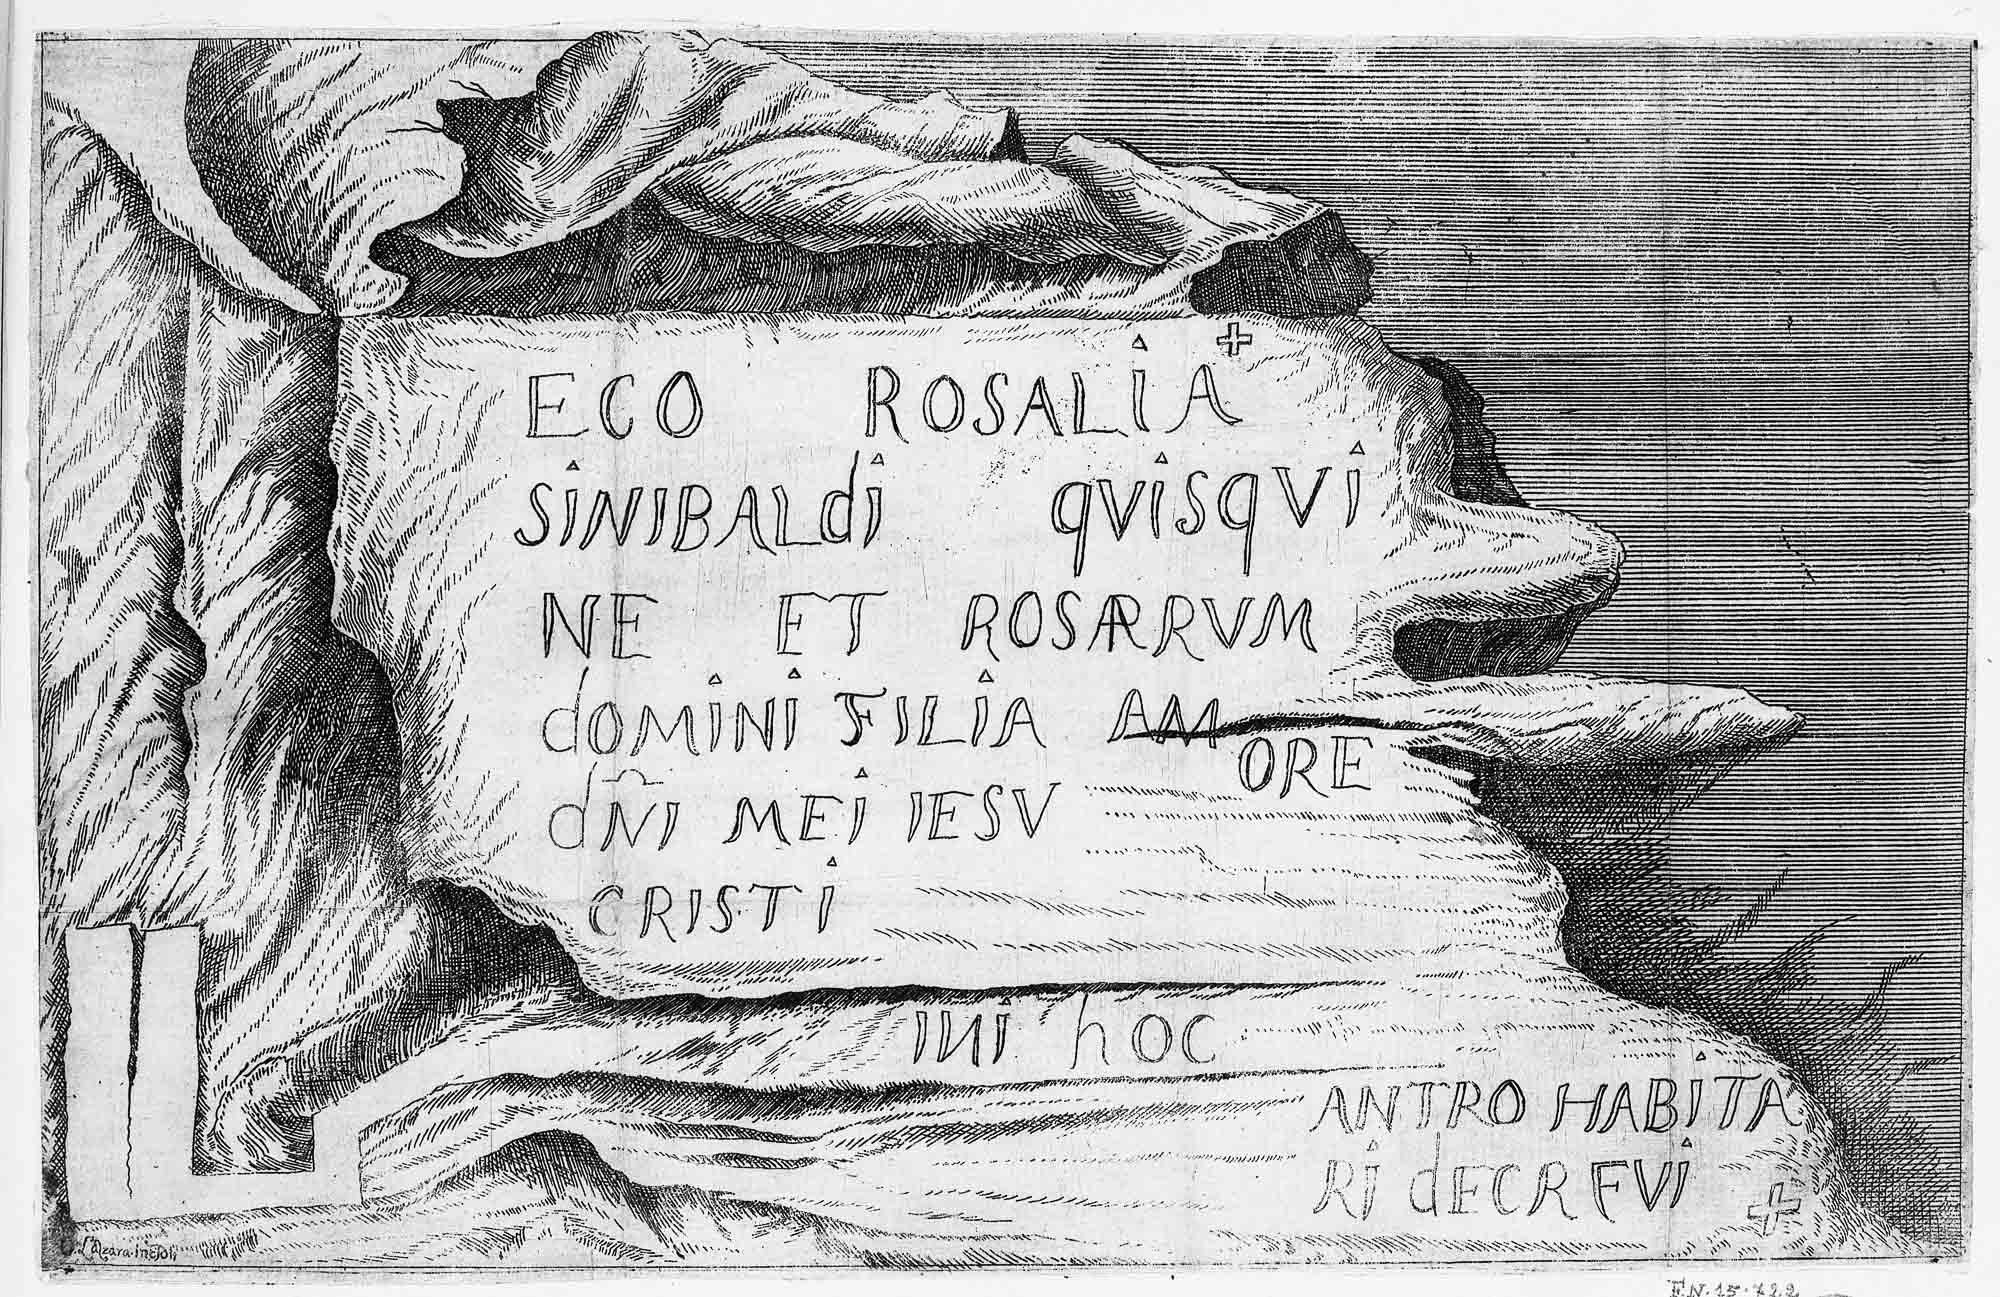 ECO ROSALIA
SINIBALdI qVISqVI
NE ET ROSARRVM
dOMINI FILIA AMORE
dÑI MEI IESV
CRISTI
INI hOC
ANTRO HABITA
RI dECREVI
EN.15.722